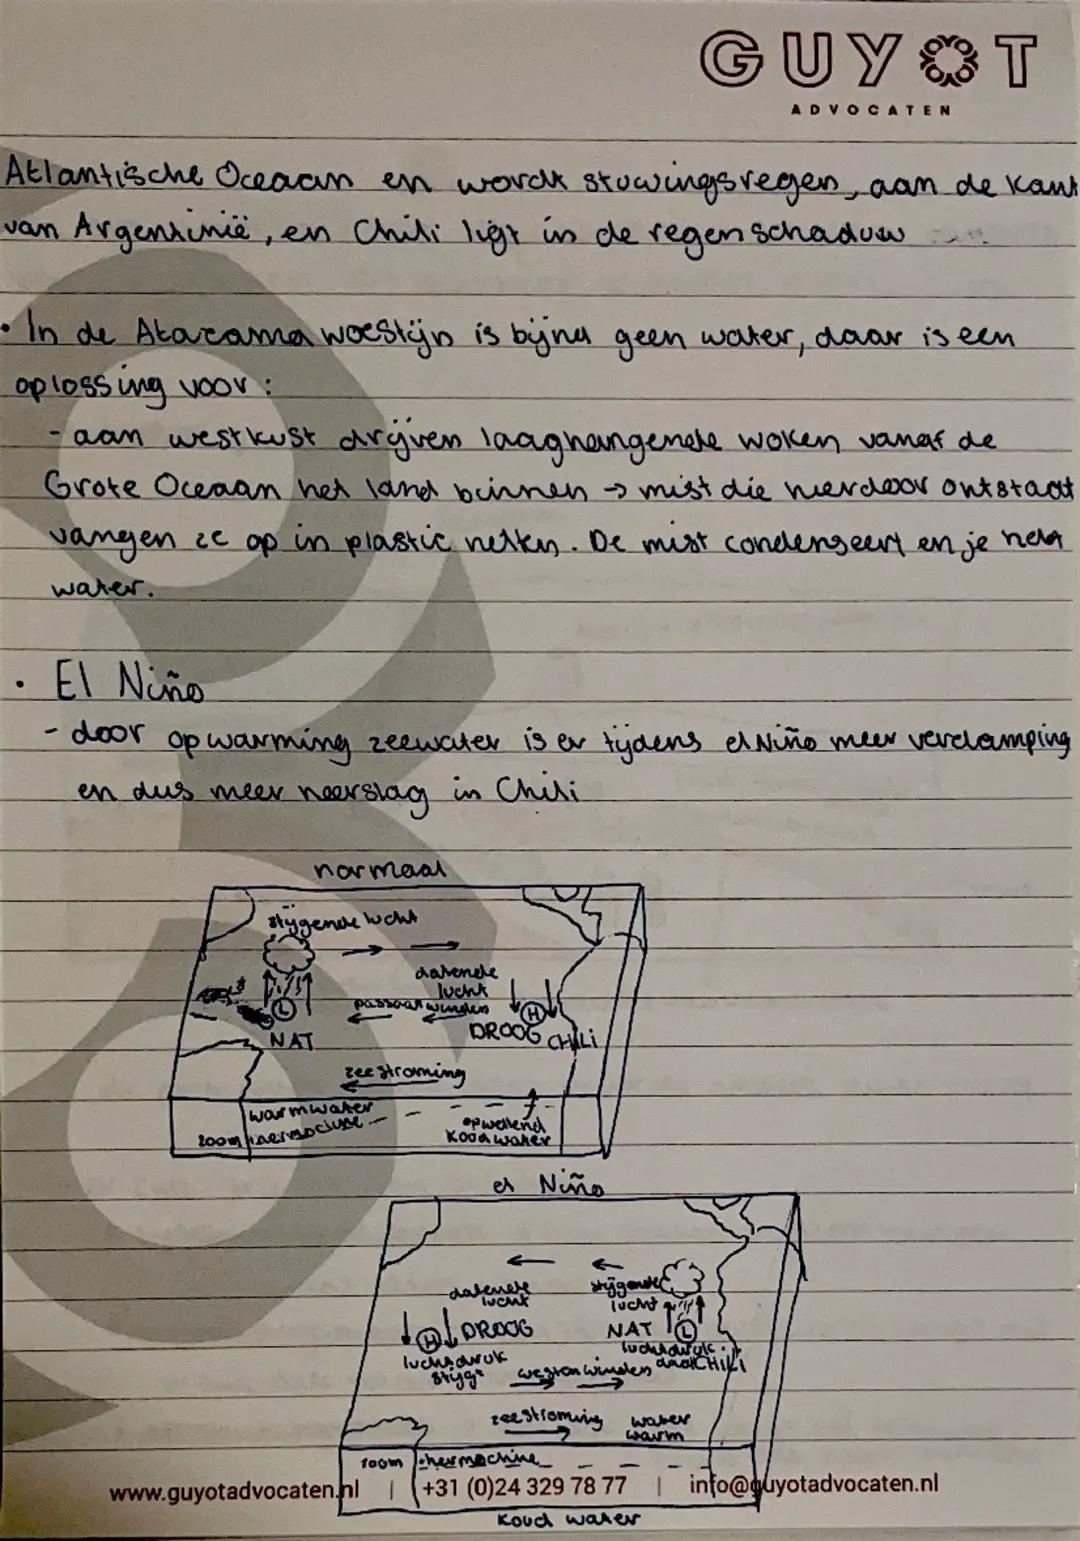 GUYOT
ADVOCATEN
Atlantische Oceaan en wordt stuwingsregen, aan de kant
van Argentinië, en Chili ligt in de regenschaduw
• In de Atacama woestijn is bijna geen water, daar is een
oplossing voor:
- aan westkust drijven laaghangende woken vanaf de
Grote Oceaan het land binnen → mist die hierdoor ontstaat
vangen ze op in plastic netten. De mist condenseert en je hebt
water.
• El Niño
- door opwarming zeewater is er tijdens el Niño meer verdamping
en dus meer neerslag in Chili
normaal
stijgende lucht
dalende
lucht
passaatwinden
L
H
NAT
DROOG
CHILI
zeestroming
warmwater
200m thermocline
opwellend
koud water
el Niño
dalende
lucht
stijgende
lucht
H DROOG
NAT L
luchtdruk
stijgt
luchtdruk
daalt CHILI
westen winden
zeestroming
water
warm
100m
www.guyotadvocaten.nl | +31 (0)24 329 78 77 | info@guyotadvocaten.nl
koud water